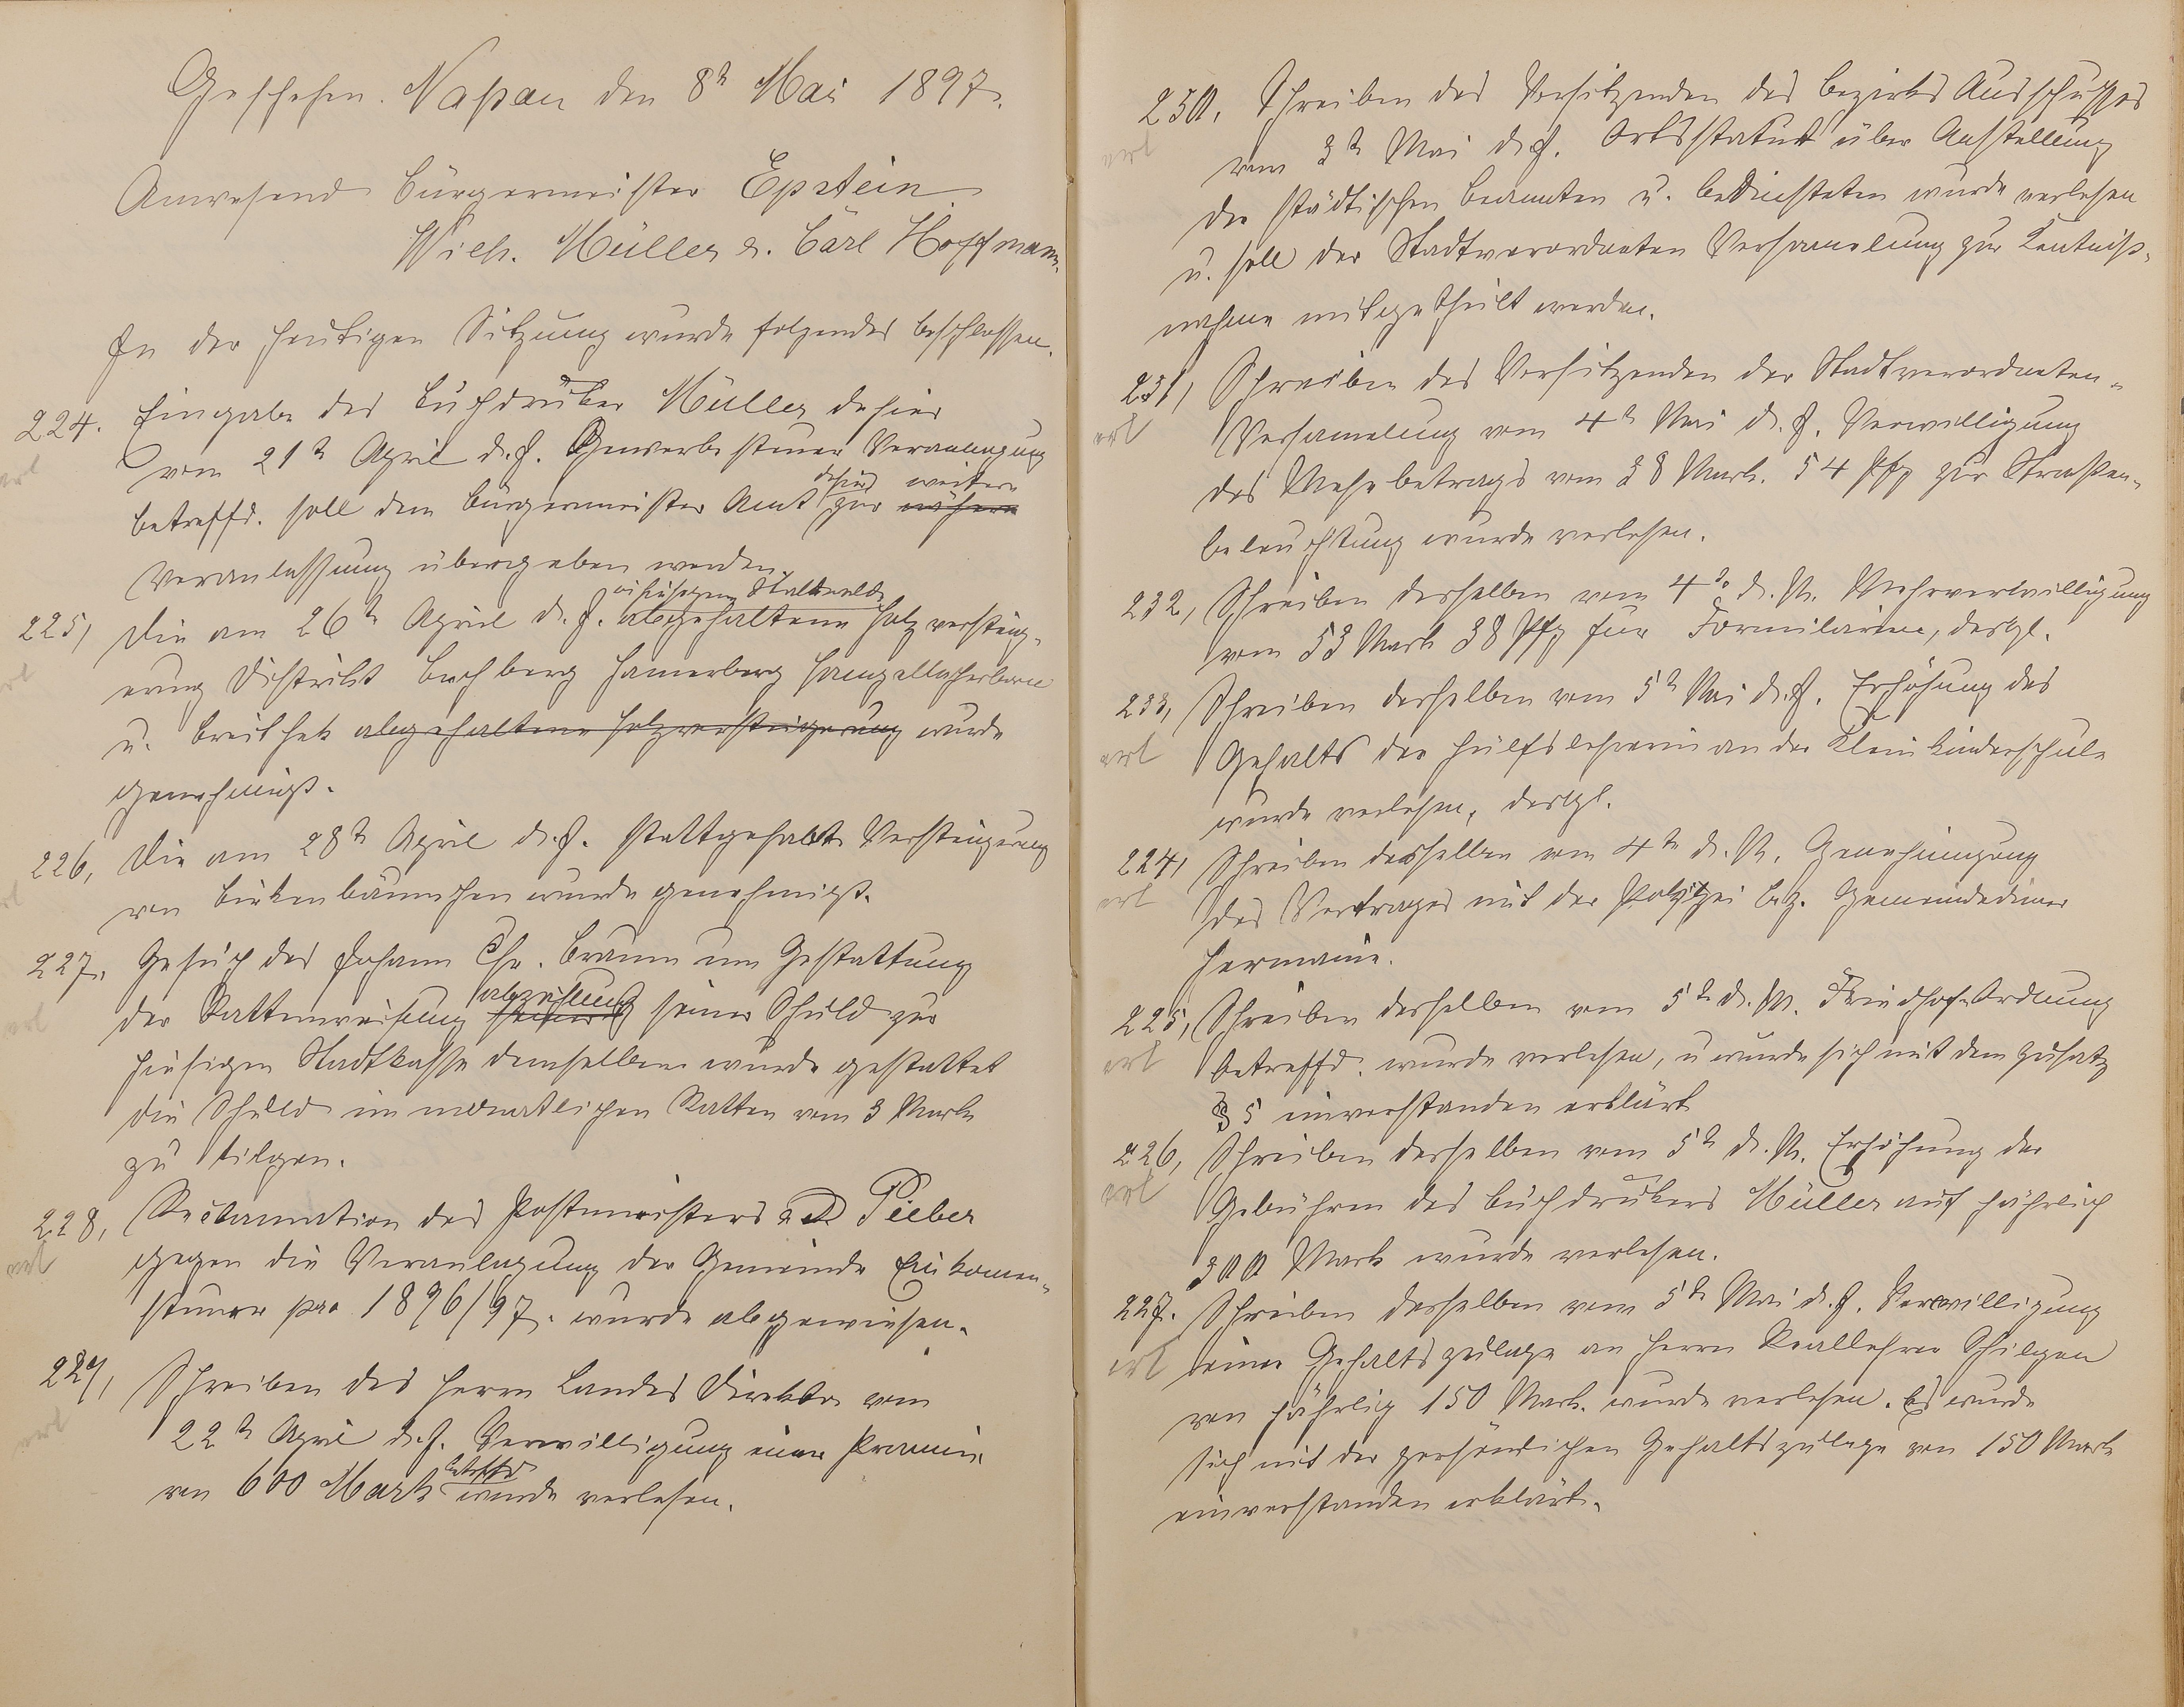 Geschehen. Naßau den 8t Mai 1897.
Anwesend Bürgermeister Epstein
Wilh. Müller u. Carl Hoffmann.
In der heutigen Sitzung wurde folgendes beschlossen.
224. Eingabe des Buchdruker Müller dahier
erl
vom 21t April d. J. Gewerbesteuer Veranlagung
dahier weitere
betreffd. soll dem Bürgermeister Amt zur nähern
Veranlassung übergeben werden.
im hiesigen Stadtwalde
225, Die am 26t April d. J. abgehaltene Holzversteig-
erl
erung Distrikt Buchberg Hamerberg
u. Breithek abgehaltene Holzversteigerung wurde
genehmigt.
226, Die am 28t April d. J. stattgehabte Versteigerung
erl
von Birkenbäumchen wurde genehmigt.
227, Gesuch des Johann Chr. Braun um Gestattung
abzahlung
der Rattenweisung seiner Schuld zur
erl
hiesigen Stadtkasse demselben wurde gestattet
die Schuld in monatlichen Ratten von 3 Mark
zu tilgen.
228, Reclamation des Postmeisters a D Pieber
erl
gegen die Veranlagung der Gemeinde Einkomen-
steuer pro 1896/97. wurde abgewiesen.
229, Schreiben des Herrn Landes Direktor vom
erl
22t April d. J. Verwilligung einer Prämie
betreffd
von 600 Mark wurde verlesen.
230, Schreiben des Vorsitzenden des Bezirks Ausschusses
erl
vom 3t Mai d. J. Ortsstatut über Anstellung
der städtischen Beamten u. Bediensteten wurde verlesen
u. soll der Stadtverordneten Versamelung zur Kentniß-
nahme mitgetheilt werden.
231, Schreiben des Vorsitzenden der Stadtverordneten-
erl
Versamelung vom 4t Mai d. J. Verwilligung
des Mehrbetrags von 38 Mark. 54 Pfg zur Straßen-
beleuchtung wurde verlesen.
232, Schreiben desselben vom 4t d. M. Mehrverwilligung
von 53 Mark 38 Pfg für Formularien, desgl.
233, Schreiben desselben vom 5t Mai d. J. Erhöhung des
erl
Gehalts der Hülfslehrerin an der Kleinkinderschule
wurde verlesen, desgl.
224, Schreiben desselben vom 4t d. M. Genehmigung
erl
des Vertrages mit der Polizei bz. Gemeindediener
Hermanie.
225, Schreiben desselben vom 5t d. M. Friedhofs-Ordnung
erl
betreffd. wurde verlesen, u wurde sich mit dem Zusatz
§ 5 einverstanden erklärt
226, Schreiben desselben vom 5t d. M. Erhöhung der
erl
Gebühren des Buchdrukers Müller auf jährlich
300 Mark wurde verlesen.
227. Schreiben desselben vom 5t Mai d. J. Verwilligung
erl
einer Gehaltszulage an Herrn Reallehrer Schilgen
von jährlig 150 Mark. wurde verlesen. Es wurde
sich mit der persönlichen Gehaltszulage von 150 Mark
einverstanden erklärt.